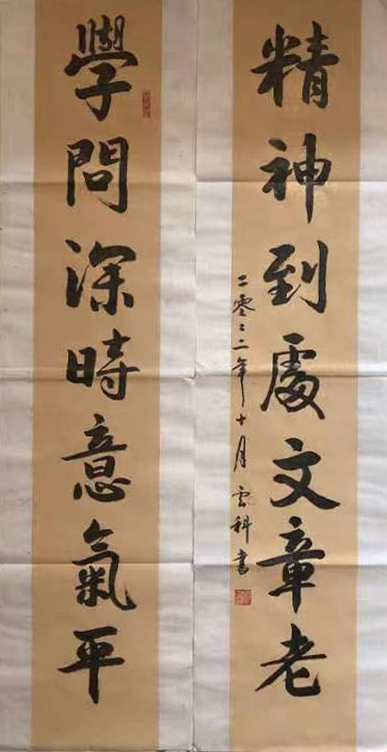 精神到處文章老
學問深時意氣平
二零二二年十月雲科書